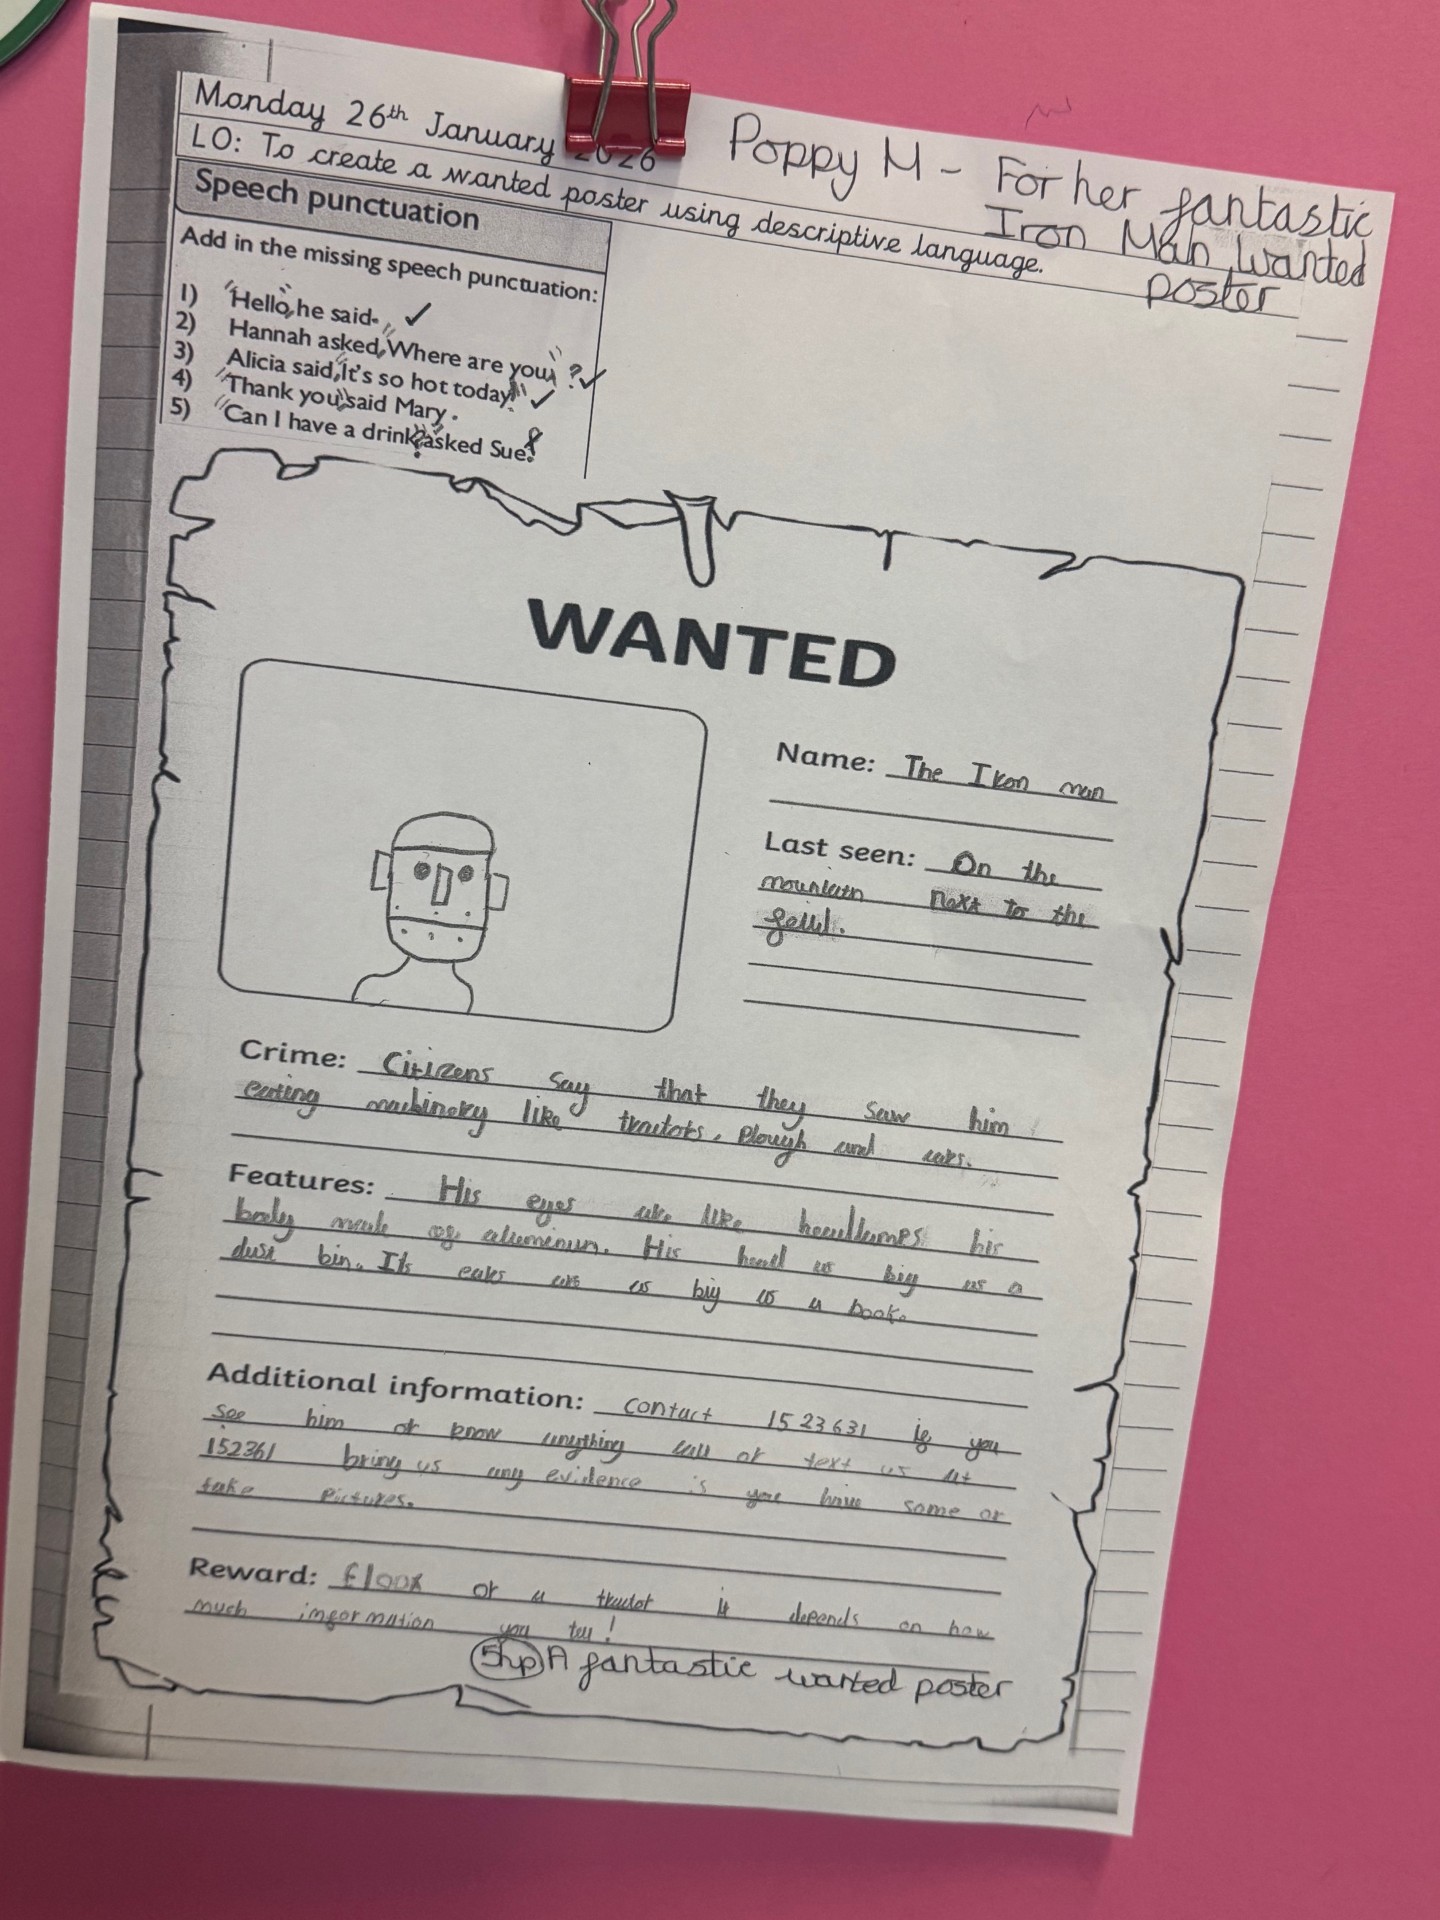 Monday 26th January 2026
Poppy M - For her fantastic
Iron Man Wanted
poster
LO: To create a wanted poster using descriptive language.
Speech punctuation
Add in the missing speech punctuation:
1) "Hello," he said. ✓
2) Hannah asked, "Where are you"? ✓
3) Alicia said, "It's so hot today!" ✓
4) "Thank you," said Mary.
5) "Can I have a drink?" asked Sue.
WANTED
Name: The Iron man
Last seen: On the
mountain next to the
feild.
Crime: Citizens say that they saw him
eating machinery like tractors, plough and cars.
Features: His eyes are like headlamps his
body made of aluminun. His head as big as a
dust bin. Its ears are as big as a book.
Additional information: contact 1523631 if you
see him or know anything call or text us at
152361 bring us any evidence is you have some or
take pictures.
Reward: or a tractor it depends on how
much information you tell!
5hp A fantastic wanted poster